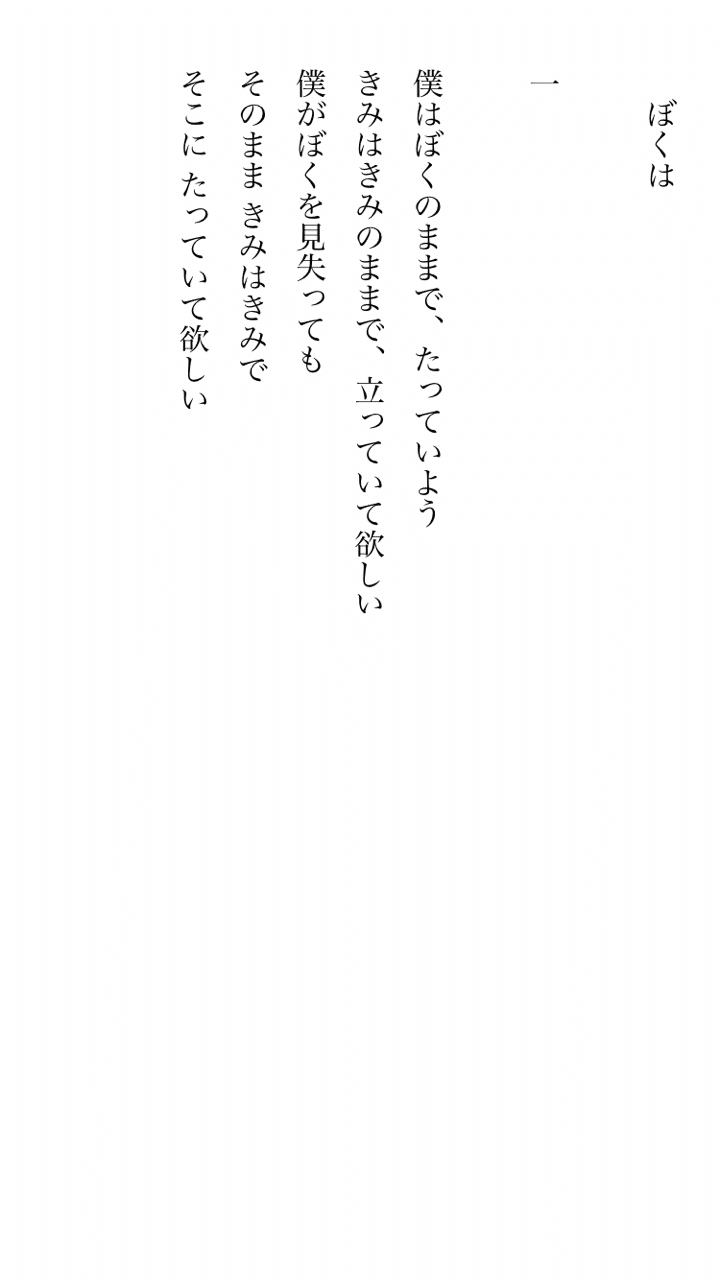 ぼくは
一
僕はぼくのままで、たっていよう
きみはきみのままで、立っていて欲しい
僕がぼくを見失っても
そのまま きみはきみで
そこに たっていて欲しい